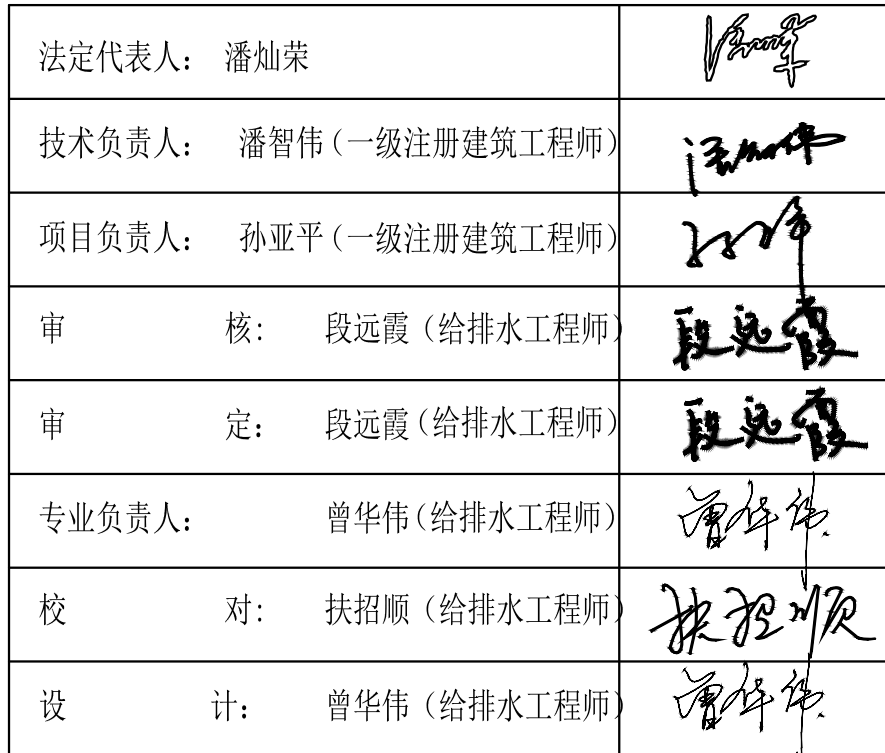 法定代表人： 潘灿荣
技术负责人： 潘智伟（一级注册建筑工程师） 潘智伟
项目负责人： 孙亚平（一级注册建筑工程师）
审 核： 段远霞（给排水工程师） 段远霞
审 定： 段远霞（给排水工程师） 段远霞
专业负责人： 曾华伟（给排水工程师） 曾华伟
校 对： 扶招顺（给排水工程师） 扶招顺
设 计： 曾华伟（给排水工程师） 曾华伟